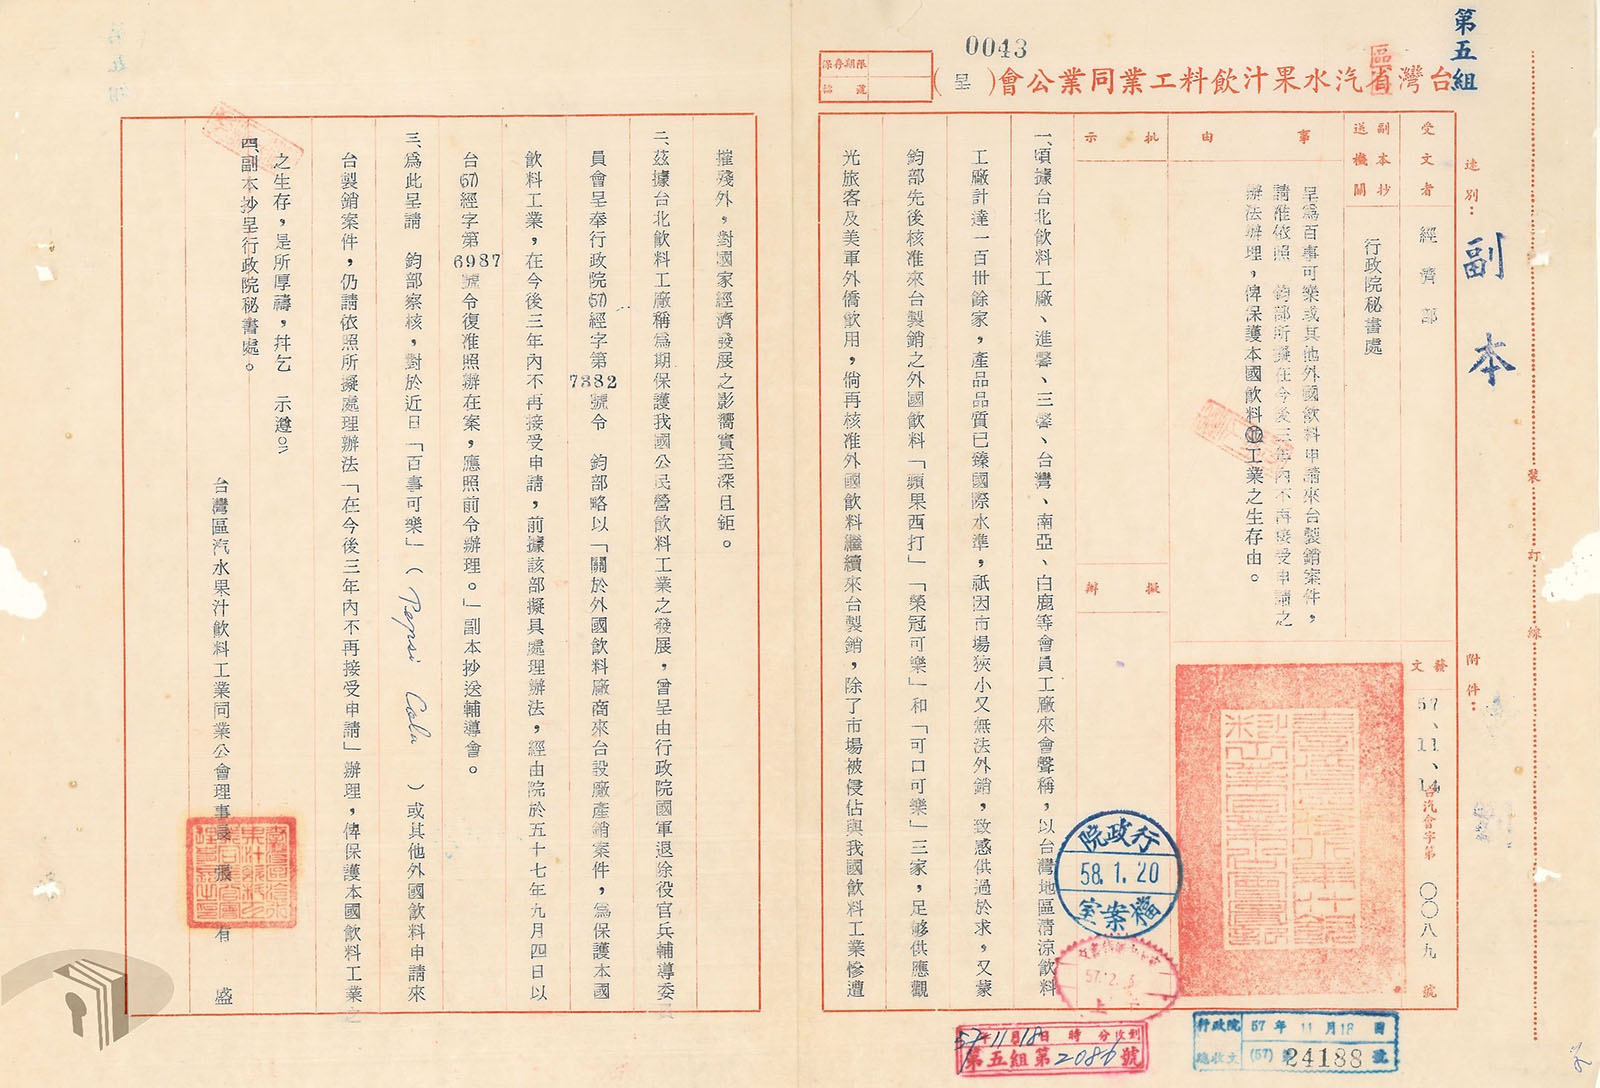 第五組
0043
台灣省汽水果汁飲料工業同業公會（呈）
區
保存期限
檔號
速別：
副本
附件：
裝
訂
線
受文者
經濟部
副本抄送機關
行政院秘書處
發文
57、11、14
台汽會字第〇〇八九號
事由
呈爲百事可樂或其他外國飲料申請來台製銷案件，
請准依照　鈞部所擬在今後三年內不再接受申請之
辦法辦理，俾保護本國飲料工業之生存由。
批示
擬辦
一、頃據台北飲料工廠、進馨、三馨、台灣、南亞、白鹿等會員工廠來會聲稱，以台灣地區清涼飲料
工廠計達一百卅餘家，產品品質已臻國際水準，祇因市場狹小又無法外銷，致感供過於求，又蒙
鈞部先後核准來台製銷之外國飲料「蘋果西打」「榮冠可樂」和「可口可樂」三家，足够供應觀
光旅客及美軍外僑飲用，倘再核准外國飲料繼續來台製銷，除了市場被侵佔與我國飲料工業慘遭
摧殘外，對國家經濟發展之影嚮實至深且鉅。
二、茲據台北飲料工廠稱爲期保護我國公民營飲料工業之發展，曾呈由行政院國軍退除役官兵輔導委
員會呈奉行政院(57)經字第7382號令　鈞部略以「關於外國飲料廠商來台設廠產銷案件，爲保護本國
飲料工業，在今後三年內不再接受申請，前據該部擬具處理辦法，經由院於五十七年九月四日以
台(57)經字第6987號令復准照辦在案，應照前令辦理。」副本抄送輔導會。
三、爲此呈請　鈞部察核，對於近日「百事可樂」（Pepsi Cola）或其他外國飲料申請來
台製銷案件，仍請依照所擬處理辦法「在今後三年內不再接受申請」辦理，俾保護本國飲料工業之
之生存，是所厚禱，幷乞　示遵。
四、副本抄呈行政院秘書處。
台灣區汽水果汁飲料工業同業公會理事長　張有盛
行政院
58.1.20
檔案室
57.12.5
57年11月18日　時　分收到
第五組第2086號
行政院
總收文
57年11月18日
(57)第24188號